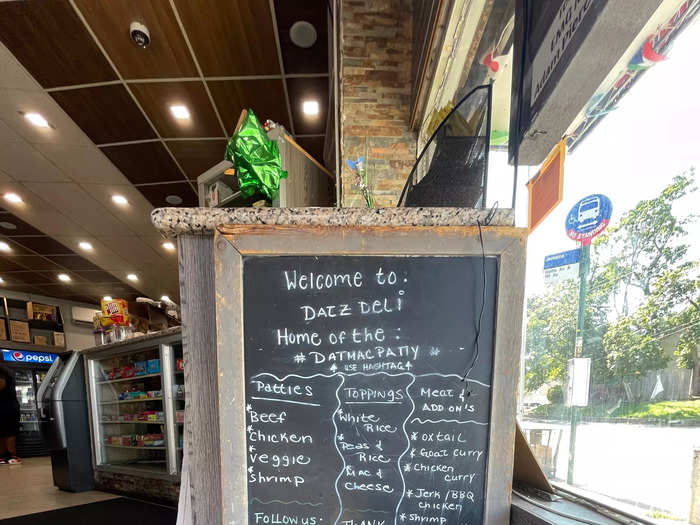 Welcome to:
DATZ DELi
Home of the:
# DATMACPATTY #
↑ USE HASHTAG ↑
Patties
* Beef
* Chicken
* Veggie
* Shrimp
Follow us:
TOPPINGS
* White
Rice
* Peas &
Rice
* Mac &
Cheese
THANK
Meat &
ADD ON'S
* OXTAIL
* Goat Curry
* Chicken
curry
* Jerk/BBQ
chicken
* Shrimp
pepsi
NO STANDING